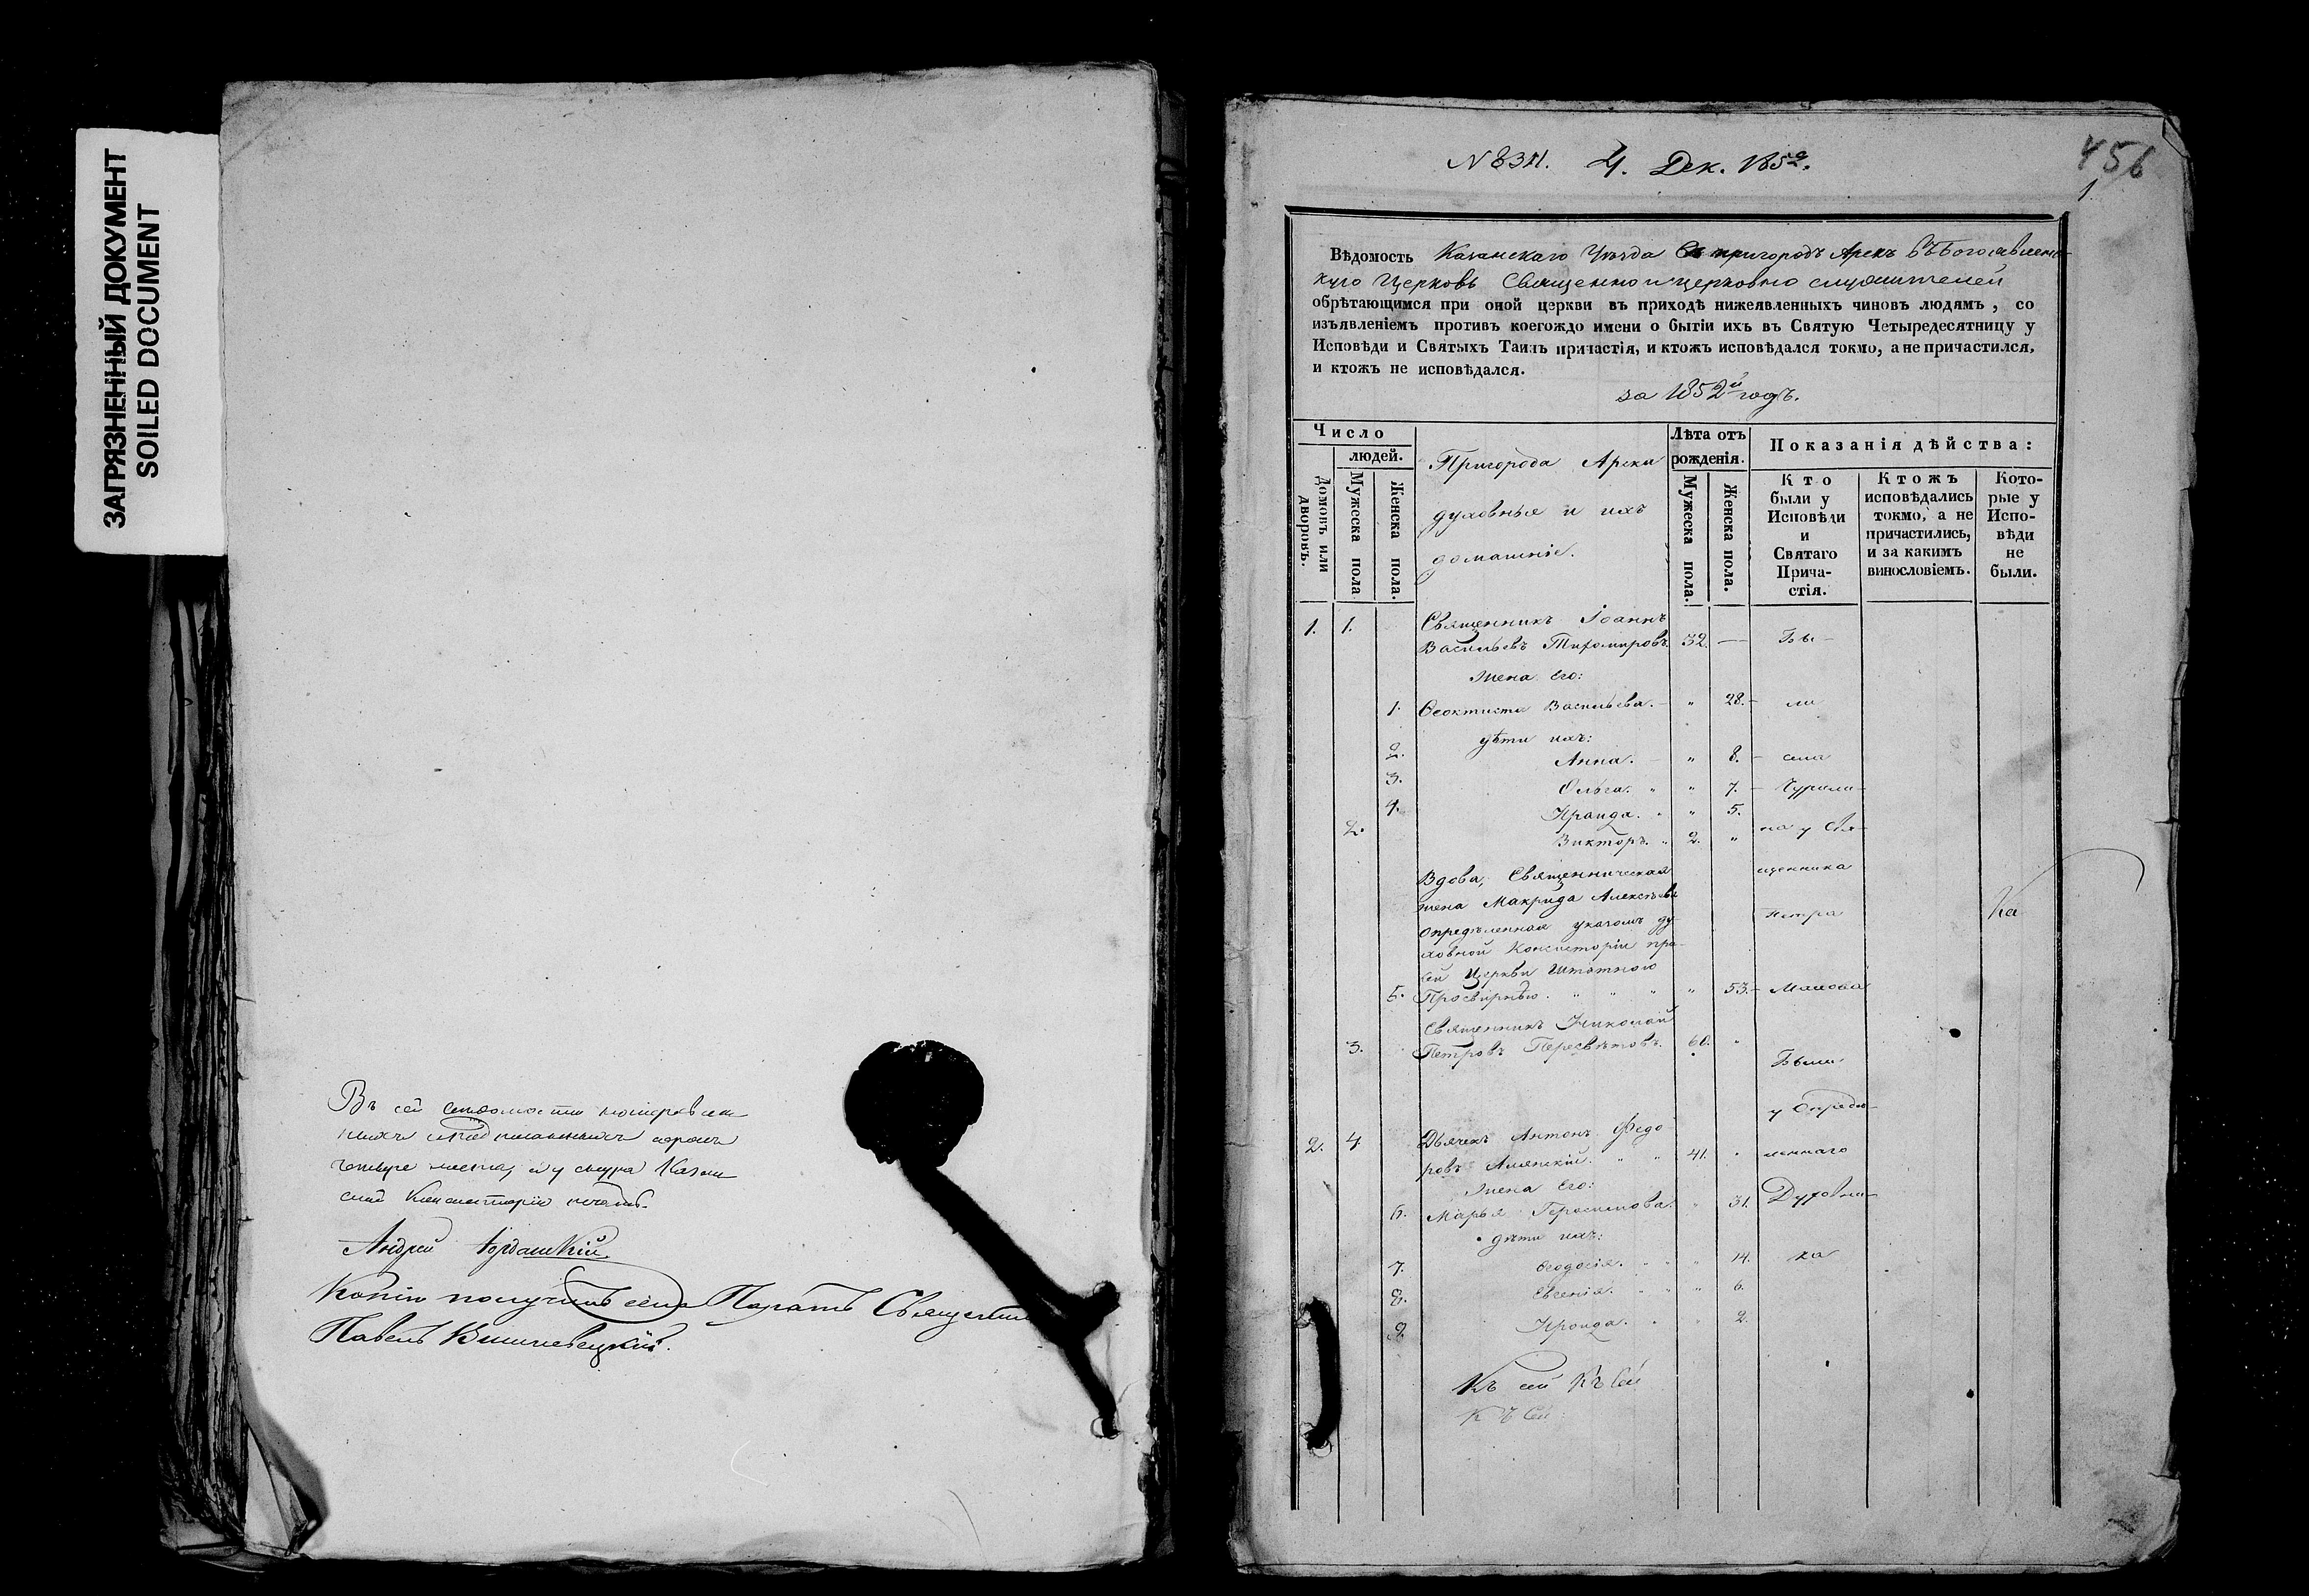 ЗАГРЯЗНЕННЫЙ ДОКУМЕНТ
SOILED DOCUMENT
Въ сей
Андрей
Копію получилъ села Паратъ Священникъ
Павелъ Вишневецкій.
4. Дек. 1852.
456
1.
Вѣдомость Казанскаго Уѣзда пригородъ Арскъ въ Богоявленс-
кую Церковь Священно и церковно служителей
обрѣтающимся при оной церкви въ приходѣ нижеявленныхъ чиновъ людямъ, со
изъявленіемъ противъ коегождо имени о бытіи ихъ въ Святую Четыредесятницу у
Исповѣди и Святыхъ Таинъ причастія, и ктожъ исповѣдался токмо, а не причастился,
и ктожъ не исповѣдался.
за 1852й годъ.
Число
людей.
Домовъ или дворовъ.
Мужеска пола
Женска пола.
Пригорода Арска
духовные и ихъ
домашніе.
Лѣта отъ
рожденія.
Мужеска пола.
Женска пола.
Показанія дѣйства:
Кто
были у
Исповѣди
и
Святаго
Прича-
стія.
Ктожъ
исповѣдались
токмо, а не
причастились,
и за какимъ
винословіемъ.
Кото-
рые у
Испо-
вѣди
не
были.
1. 1. Священникъ Іоаннъ
Васильевъ Тихомировъ. 32. — Бы-
Жена его:
1. Ѳеоктиста Васильева. - " 28. - ли
дѣти ихъ:
2. Анна. - " 8. - села
3. Ольга. " " 7. - Чурили-
4. Ираида. " " 5.
2. Викторъ. " 2. " на у Свя-
Вдова, Священническая щенника
жена Макрида Алексѣева Петра
опредѣленная указомъ ду-
ховной Консисторіи при
сей Церкви штатною
5. Просвирнею. " " " " 53. - Малова
Ка
Священникъ Николай
3. Петровъ Пересвѣтовъ. 60. "
Были
у Опредѣ-
2. 4 Дьячекъ Антонъ Федо-
ровъ 41. " леннаго
Жена его:
6. Марья Герасимова. " 31. Духовни-
дѣти ихъ:
7. Ѳеодосія. " " " 14. ка
8. Евгенія. " " " 6.
9. Ираида. " " 2.
Къ сей Къ сей
Къ сей